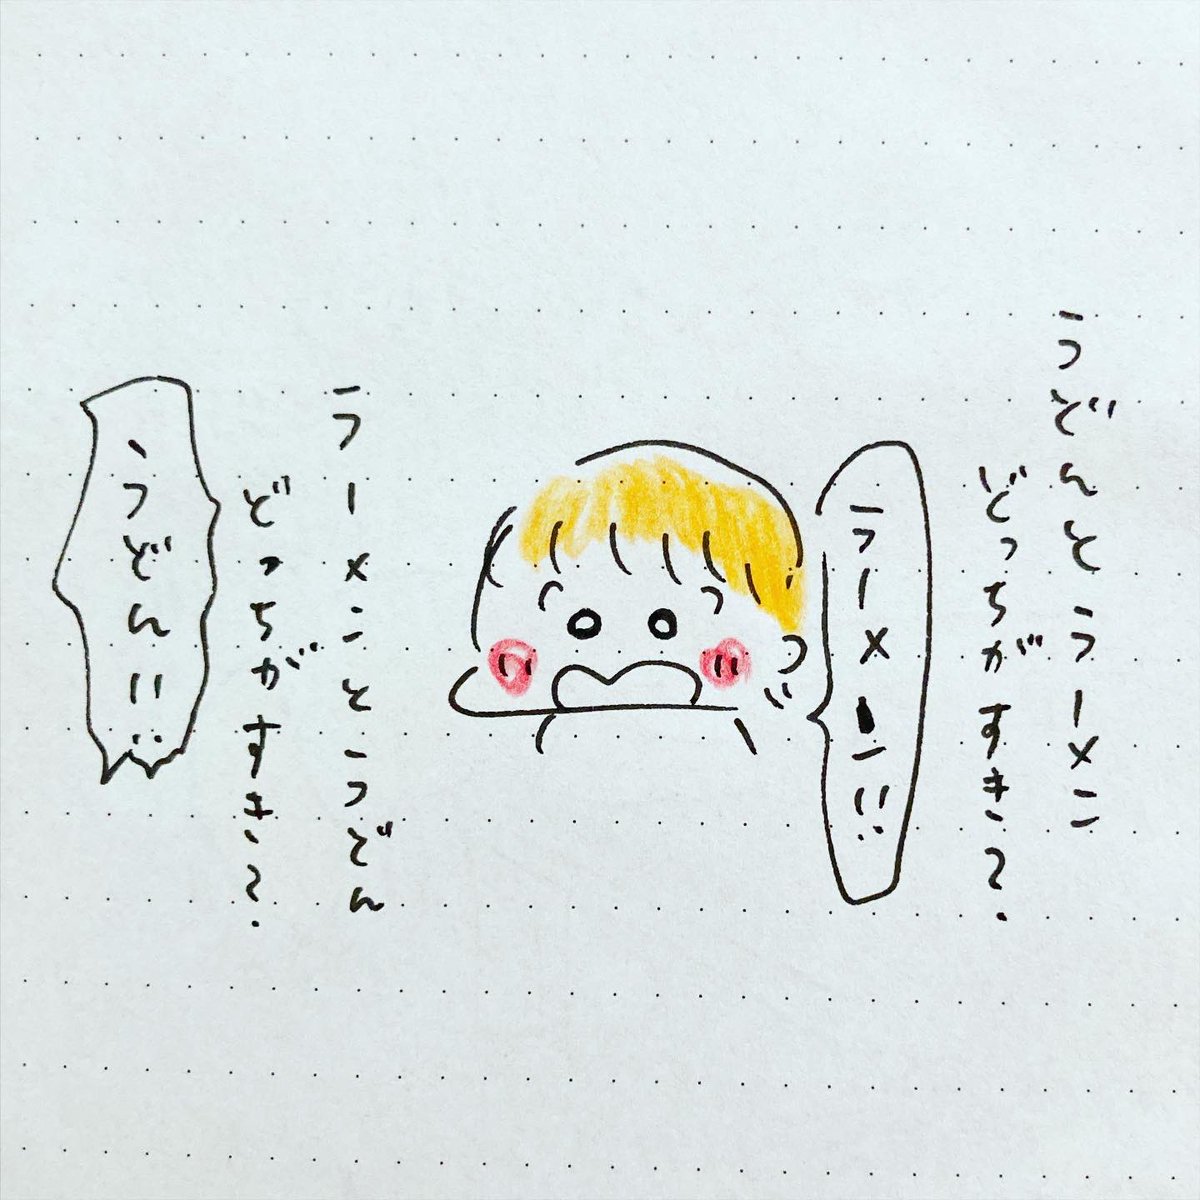 うどんとラーメン
どっちがすき？
ラーメーン!!
ラーメンとうどん
どっちがすき？
うどん!!